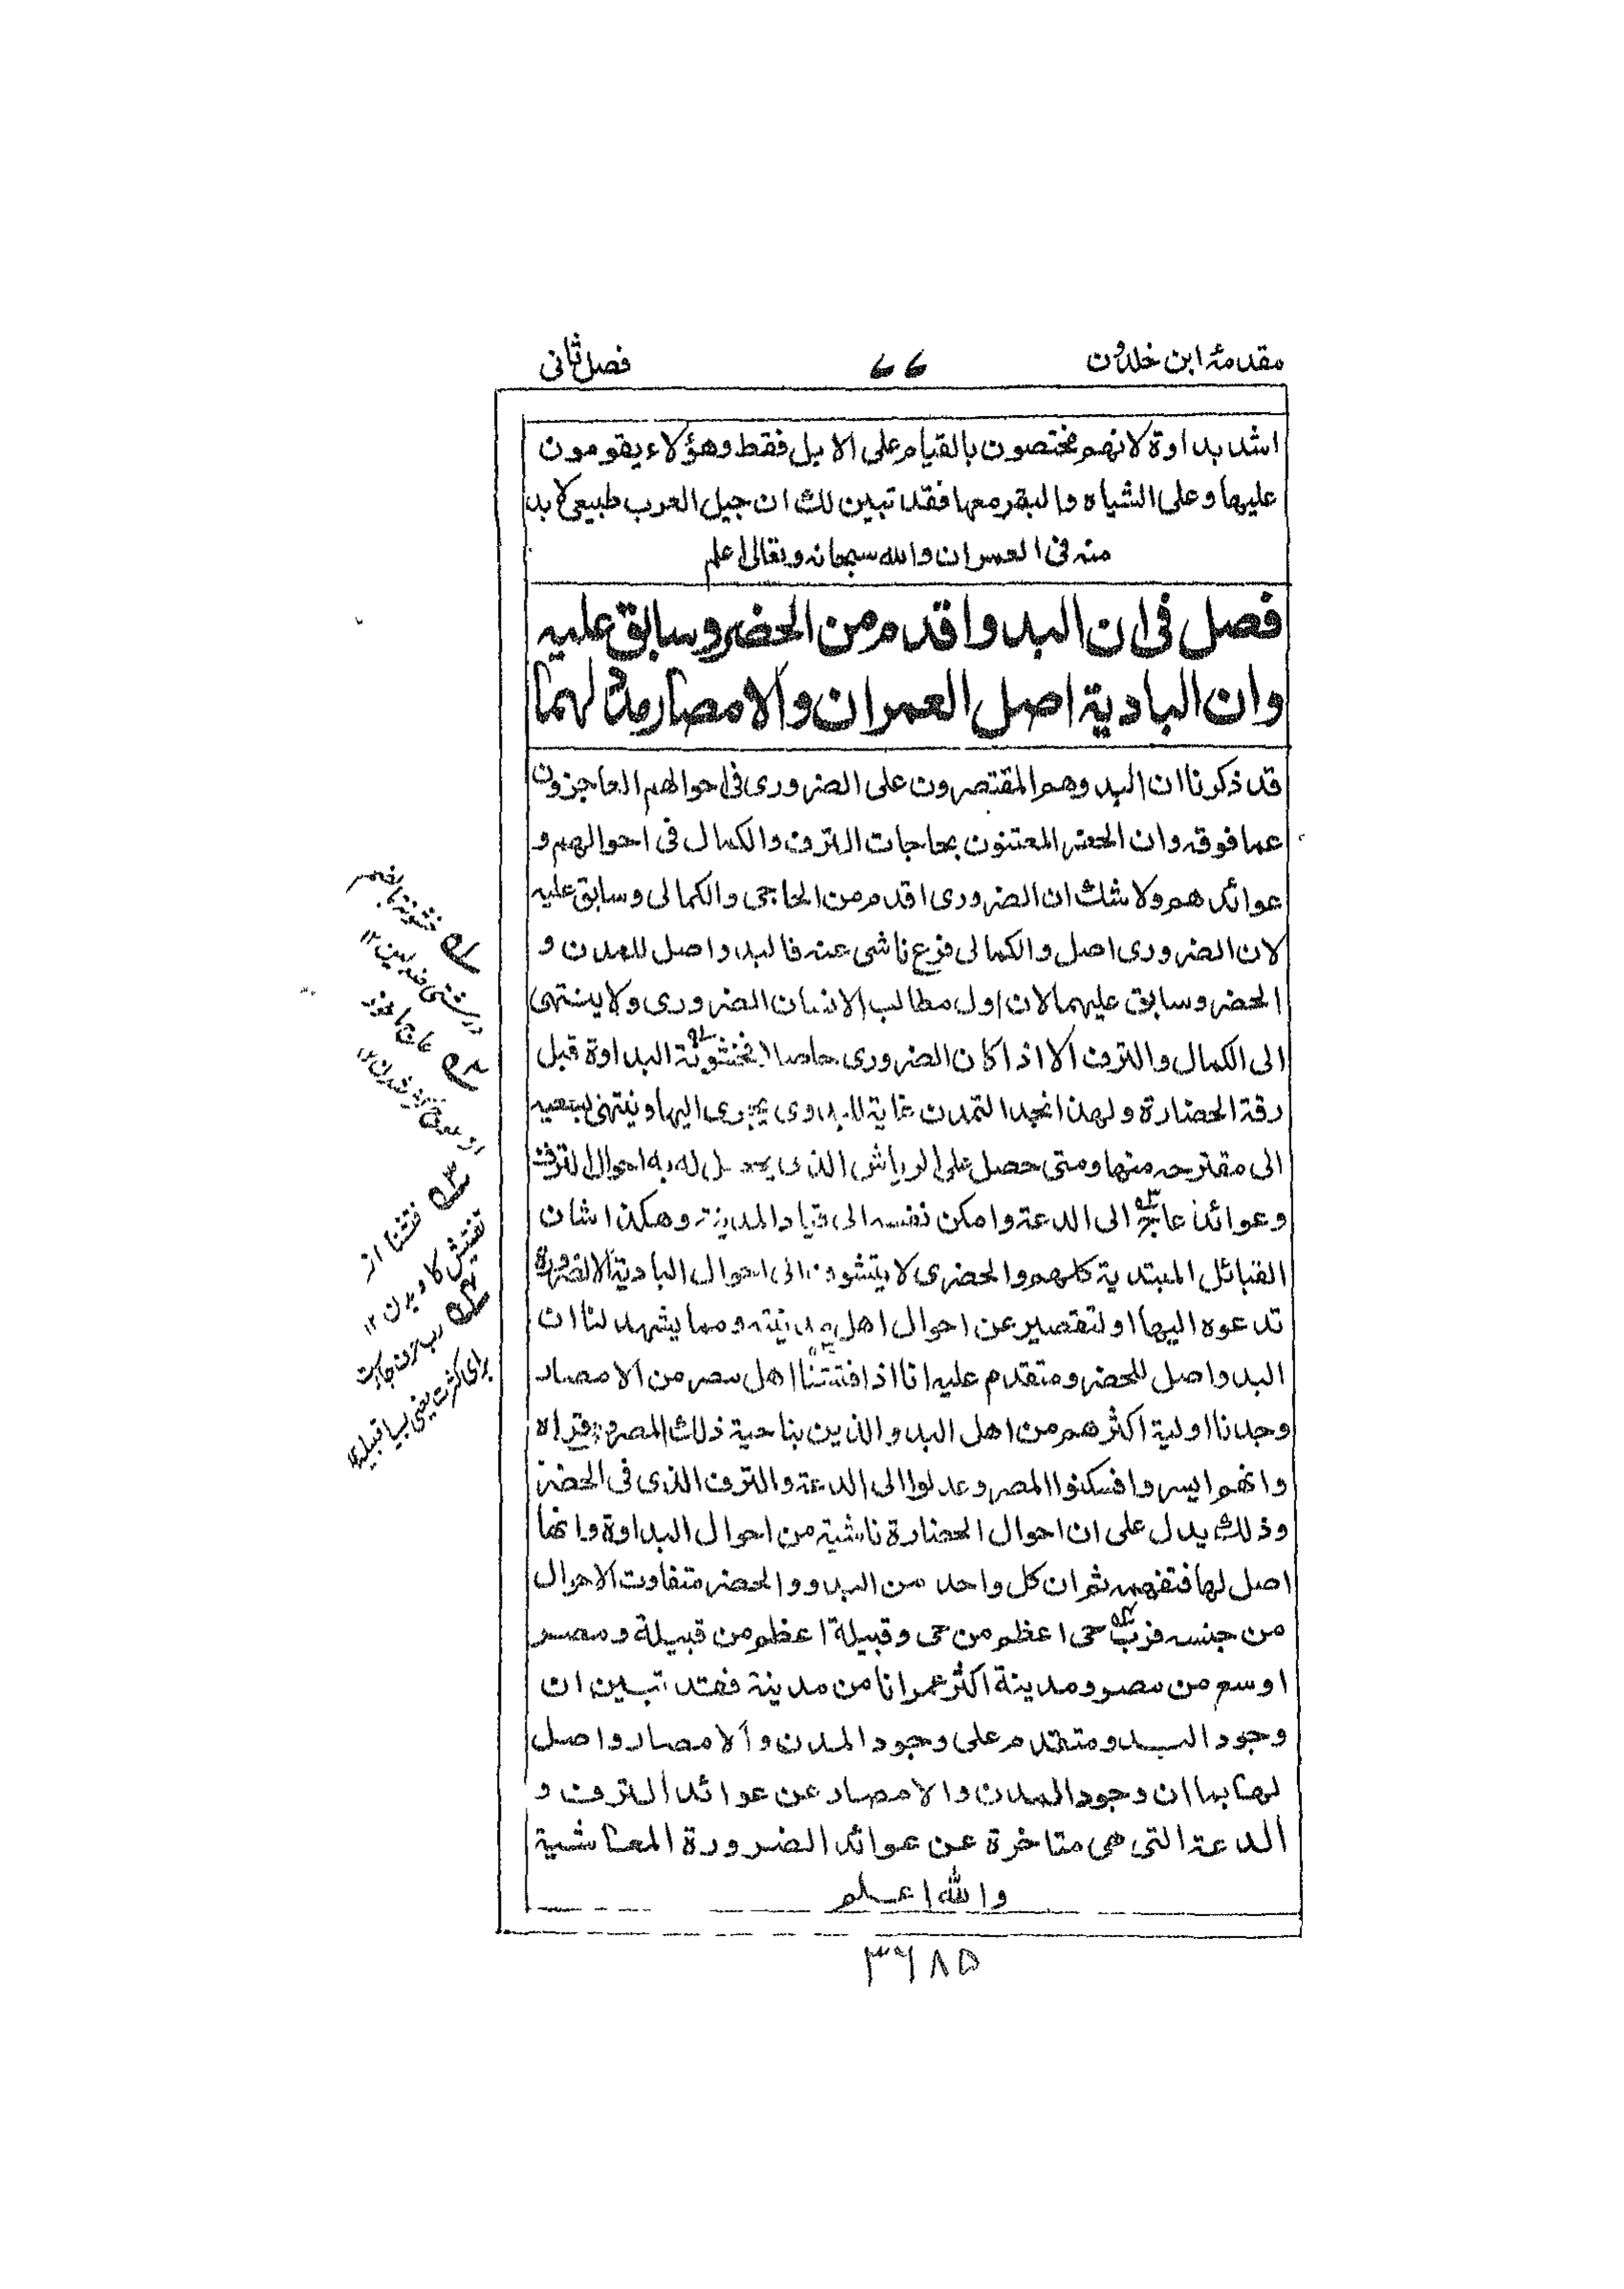 مقدمۂ ابن خلدون
٦٦
فصل ثانی
اشد بداوة لانهم مختصون بالقيام على الابل فقط وهؤلاء يقومون
عليها وعلى الشياه والبقر معها فقد تبين لك ان جيل العرب طبيعى لا بد
منه فى العمران والله سبحانه وتعالى اعلم
فصل فى ان البدو اقدم من الحضر وسابق عليه
وان البادية اصل العمران والامصار مدد لهما
قد ذكرنا ان البدو هم المقتصرون على الضرورى فى احوالهم العاجزون
عما فوقه وان الحضر المعتنون بحاجات الترف والكمال فى احوالهم و
عوائدهم ولا شك ان الضرورى اقدم من الحاجى والكمالى وسابق عليه
لان الضرورى اصل والكمالى فرع ناشى عنه فالبدو اصل للمدن و
الحضر وسابق عليهما لان اول مطالب الانسان الضرورى ولا ينتهى
الى الكمال والترف الا اذا كان الضرورى حاصلا فخشونة البداوة قبل
رقة الحضارة ولهذا نجد التمدن غاية للبدوى يجرى اليها وينتهى بسعيه
الى مقترحه منها ومتى حصل على الرياش الذى يحصل له به احوال الترف
وعوائده عاج الى الدعة وامكن نفسه الى قياد المدينة وهكذا شان
القبائل المبتدية كلهم والحضرى لا يتشوف الى احوال البادية الا لضرورة
تدعوه اليها او لتقصير عن احوال اهل مدينته ومما يشهد لنا ان
البدو اصل للحضر ومتقدم عليه انا اذا فتشنا اهل مصر من الامصار
وجدنا اولية اكثرهم من اهل البدو الذين بناحية ذلك المصر وفى قراه
وانهم ايسروا فسكنوا المصر وعدلوا الى الدعة والترف الذى فى الحضر
وذلك يدل على ان احوال الحضارة ناشية من احوال البداوة وانها
اصل لها فتفهمه ثم ان كل واحد من البدو والحضر متفاوت الاحوال
من جنسه فرب حى اعظم من حى وقبيلة اعظم من قبيلة ومصر
اوسع من مصر ومدينة اكثر عمرانا من مدينة فقد تبين ان
وجود البدو متقدم على وجود المدن والامصار واصل
لها بما ان وجود المدن والامصار عن عوائد الترف و
الدعة التى هى متاخرة عن عوائد الضرورة المعاشية
والله اعلم
٣٦٨٥
فتشنا از
تفتيش كاويدن ١٢
رب حرف جارست
براى كثرت يعنى بسيا قبيله